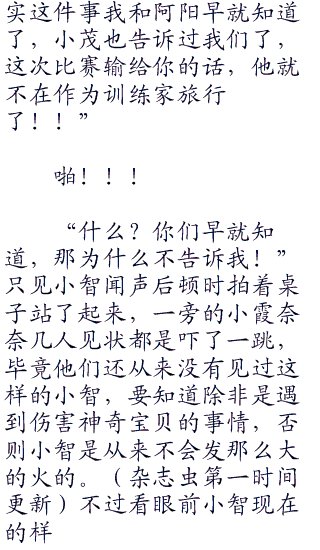 实这件事我和阿阳早就知道
了，小茂也告诉过我们了，
这次比赛输给你的话，他就
不在作为训练家旅行
了！！”
啪！！！
“什么？你们早就知
道，那为什么不告诉我！”
只见小智闻声后顿时拍着桌
子站了起来，一旁的小霞奈
奈几人见状都是吓了一跳，
毕竟他们还从来没有见过这
样的小智，要知道除非是遇
到伤害神奇宝贝的事情，否
则小智是从来不会发那么大
的火的。（杂志虫第一时间
更新）不过看眼前小智现在
的样